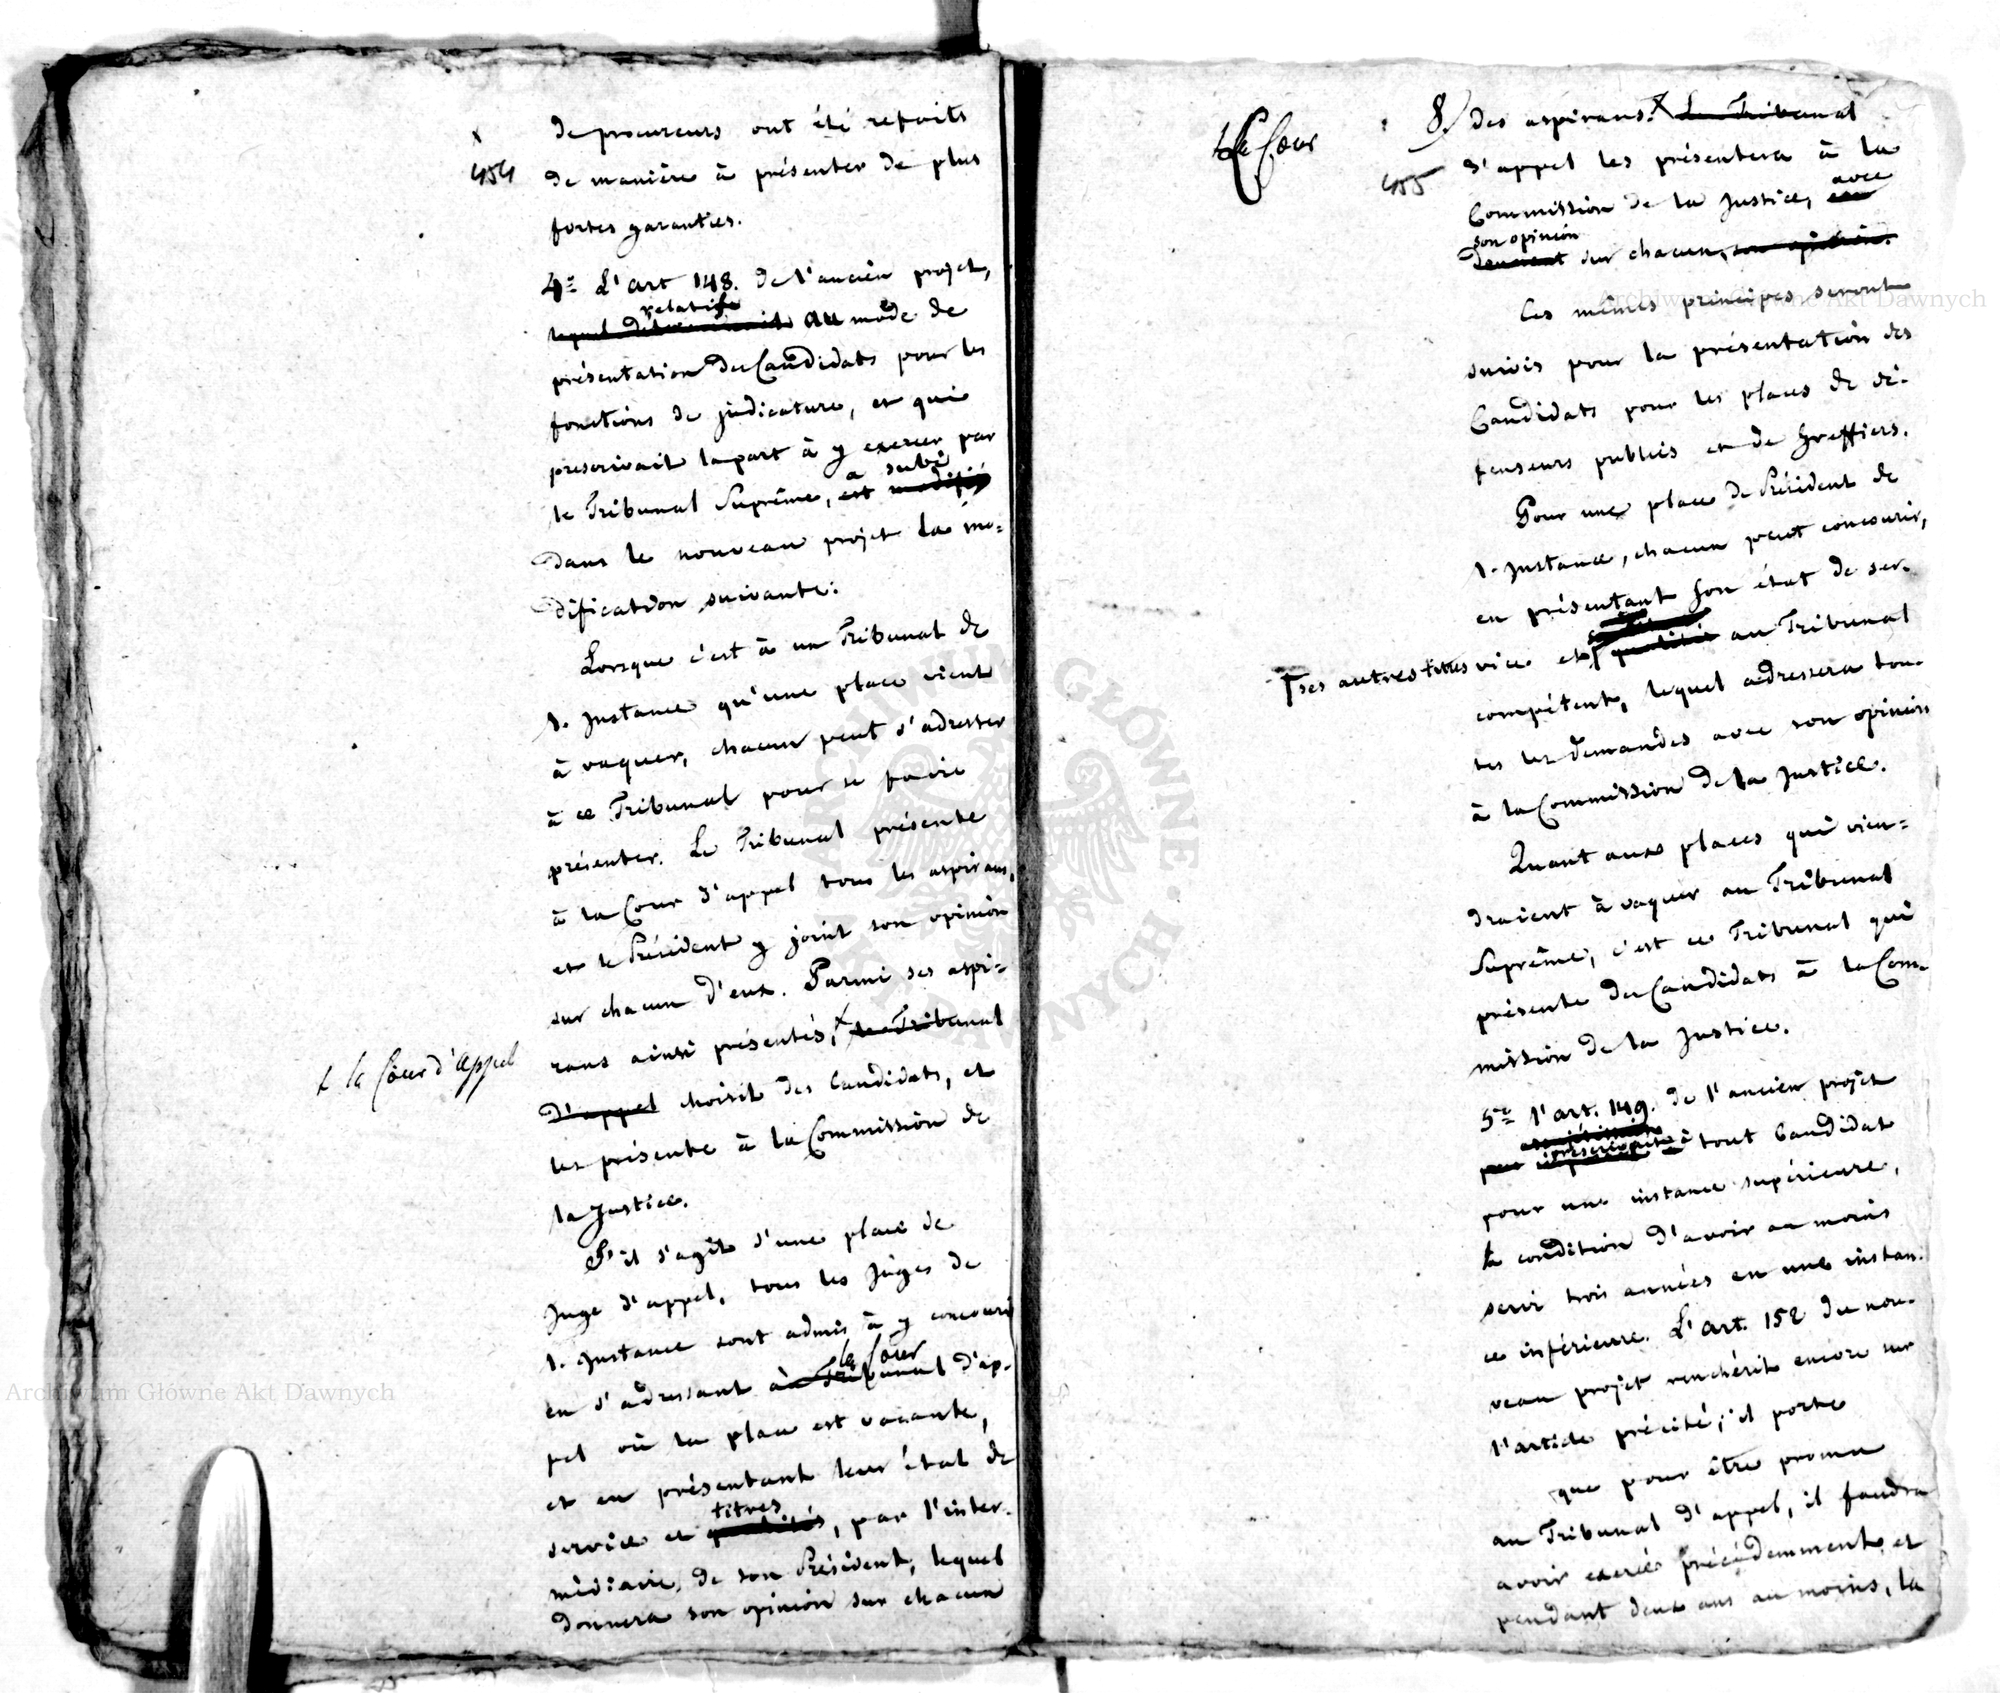 454
de procureurs ont été refaits
de manière à présenter de plus
fortes garanties.
4º L'art 148. de l'ancien projet,
relatif
lequel déterminait au mode de
présentation des Candidats pour les
fonctions de judicature, et qui
prescrivait la part à y exercer par
a subi
le Tribunal Suprême, est modifié
dans le nouveau projet la mo-
dification suivante:
Lorsque c'est à un Tribunal de
1. Instance qu'une place vient
à vaquer, chacun peut s'adresser
à ce Tribunal pour se faire
présenter. Le Tribunal présente
à la Cour d'appel tous les aspirans,
et le Président y joint son opinion
sur chacun d'eux. Parmi ses aspi-
rans ainsi présentés, le Tribunal
+ la Cour d'Appel
d'appel choisit des Candidats, et
les présente à la Commission de
la Justice.
S'il s'agit d'une place de
Juge d'appel, tous les Juges de
1. Instance sont admis à y concourir
la Cour
en s'adressant au Tribunal d'ap-
pel où la place est vacante,
et en présentant leur état de
titres
service et qualités, par l'inter-
médiaire, de son Président, lequel
donnera son opinion sur chacun
La Cour
8.) des aspirans. Le Tribunal
455
d'appel les présentera à la
avec
Commission de la Justice, en
son opinion
donnant sur chacun, son opinion.
Les mêmes principes seront
suivis pour la présentation des
Candidats pour les places de dé-
fenseurs publics et de Greffiers.
Pour une place de Président de
1. Instance, chacun peut concourir,
en présentant son état de ser-
ses autres titres
vice et qualités au Tribunal
compétent, lequel adressera tou-
tes les demandes avec son opinion
à la Commission de la Justice.
Quant aux places qui vien-
draient à vaquer au Tribunal
Suprême, c'est ce Tribunal qui
présente des Candidats à la Com-
mission de la Justice.
5º l'art. 149. de l'ancien projet
prescrivait à tout Candidat
pour une instance supérieure,
la condition d'avoir au moins
servi trois années en une instan-
ce inférieure. L'art. 152 du nou-
veau projet renchérit encore sur
l'article précité; il porte
que pour être promu
au Tribunal d'appel, il faudra
avoir exercé précédemment, et
pendant deux ans au moins, la
Archiwum Główne Akt Dawnych
Archiwum Główne Akt Dawnych
ARCHIWUM GŁÓWNE AKT DAWNYCH